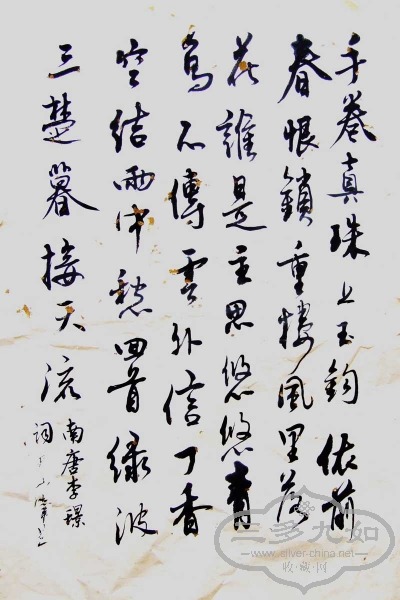 手卷真珠上玉鈎依前
春恨鎖重樓風里落
花誰是主思悠悠青
鳥不傳雲外信丁香
空結雨中愁回首綠波
三楚暮接天流
南唐李璟
詞
三多九如
www.silver-china.net
收·藏·网